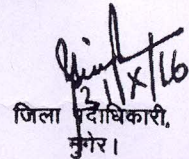 21/X/16
जिला पदाधिकारी,
मुंगेर।